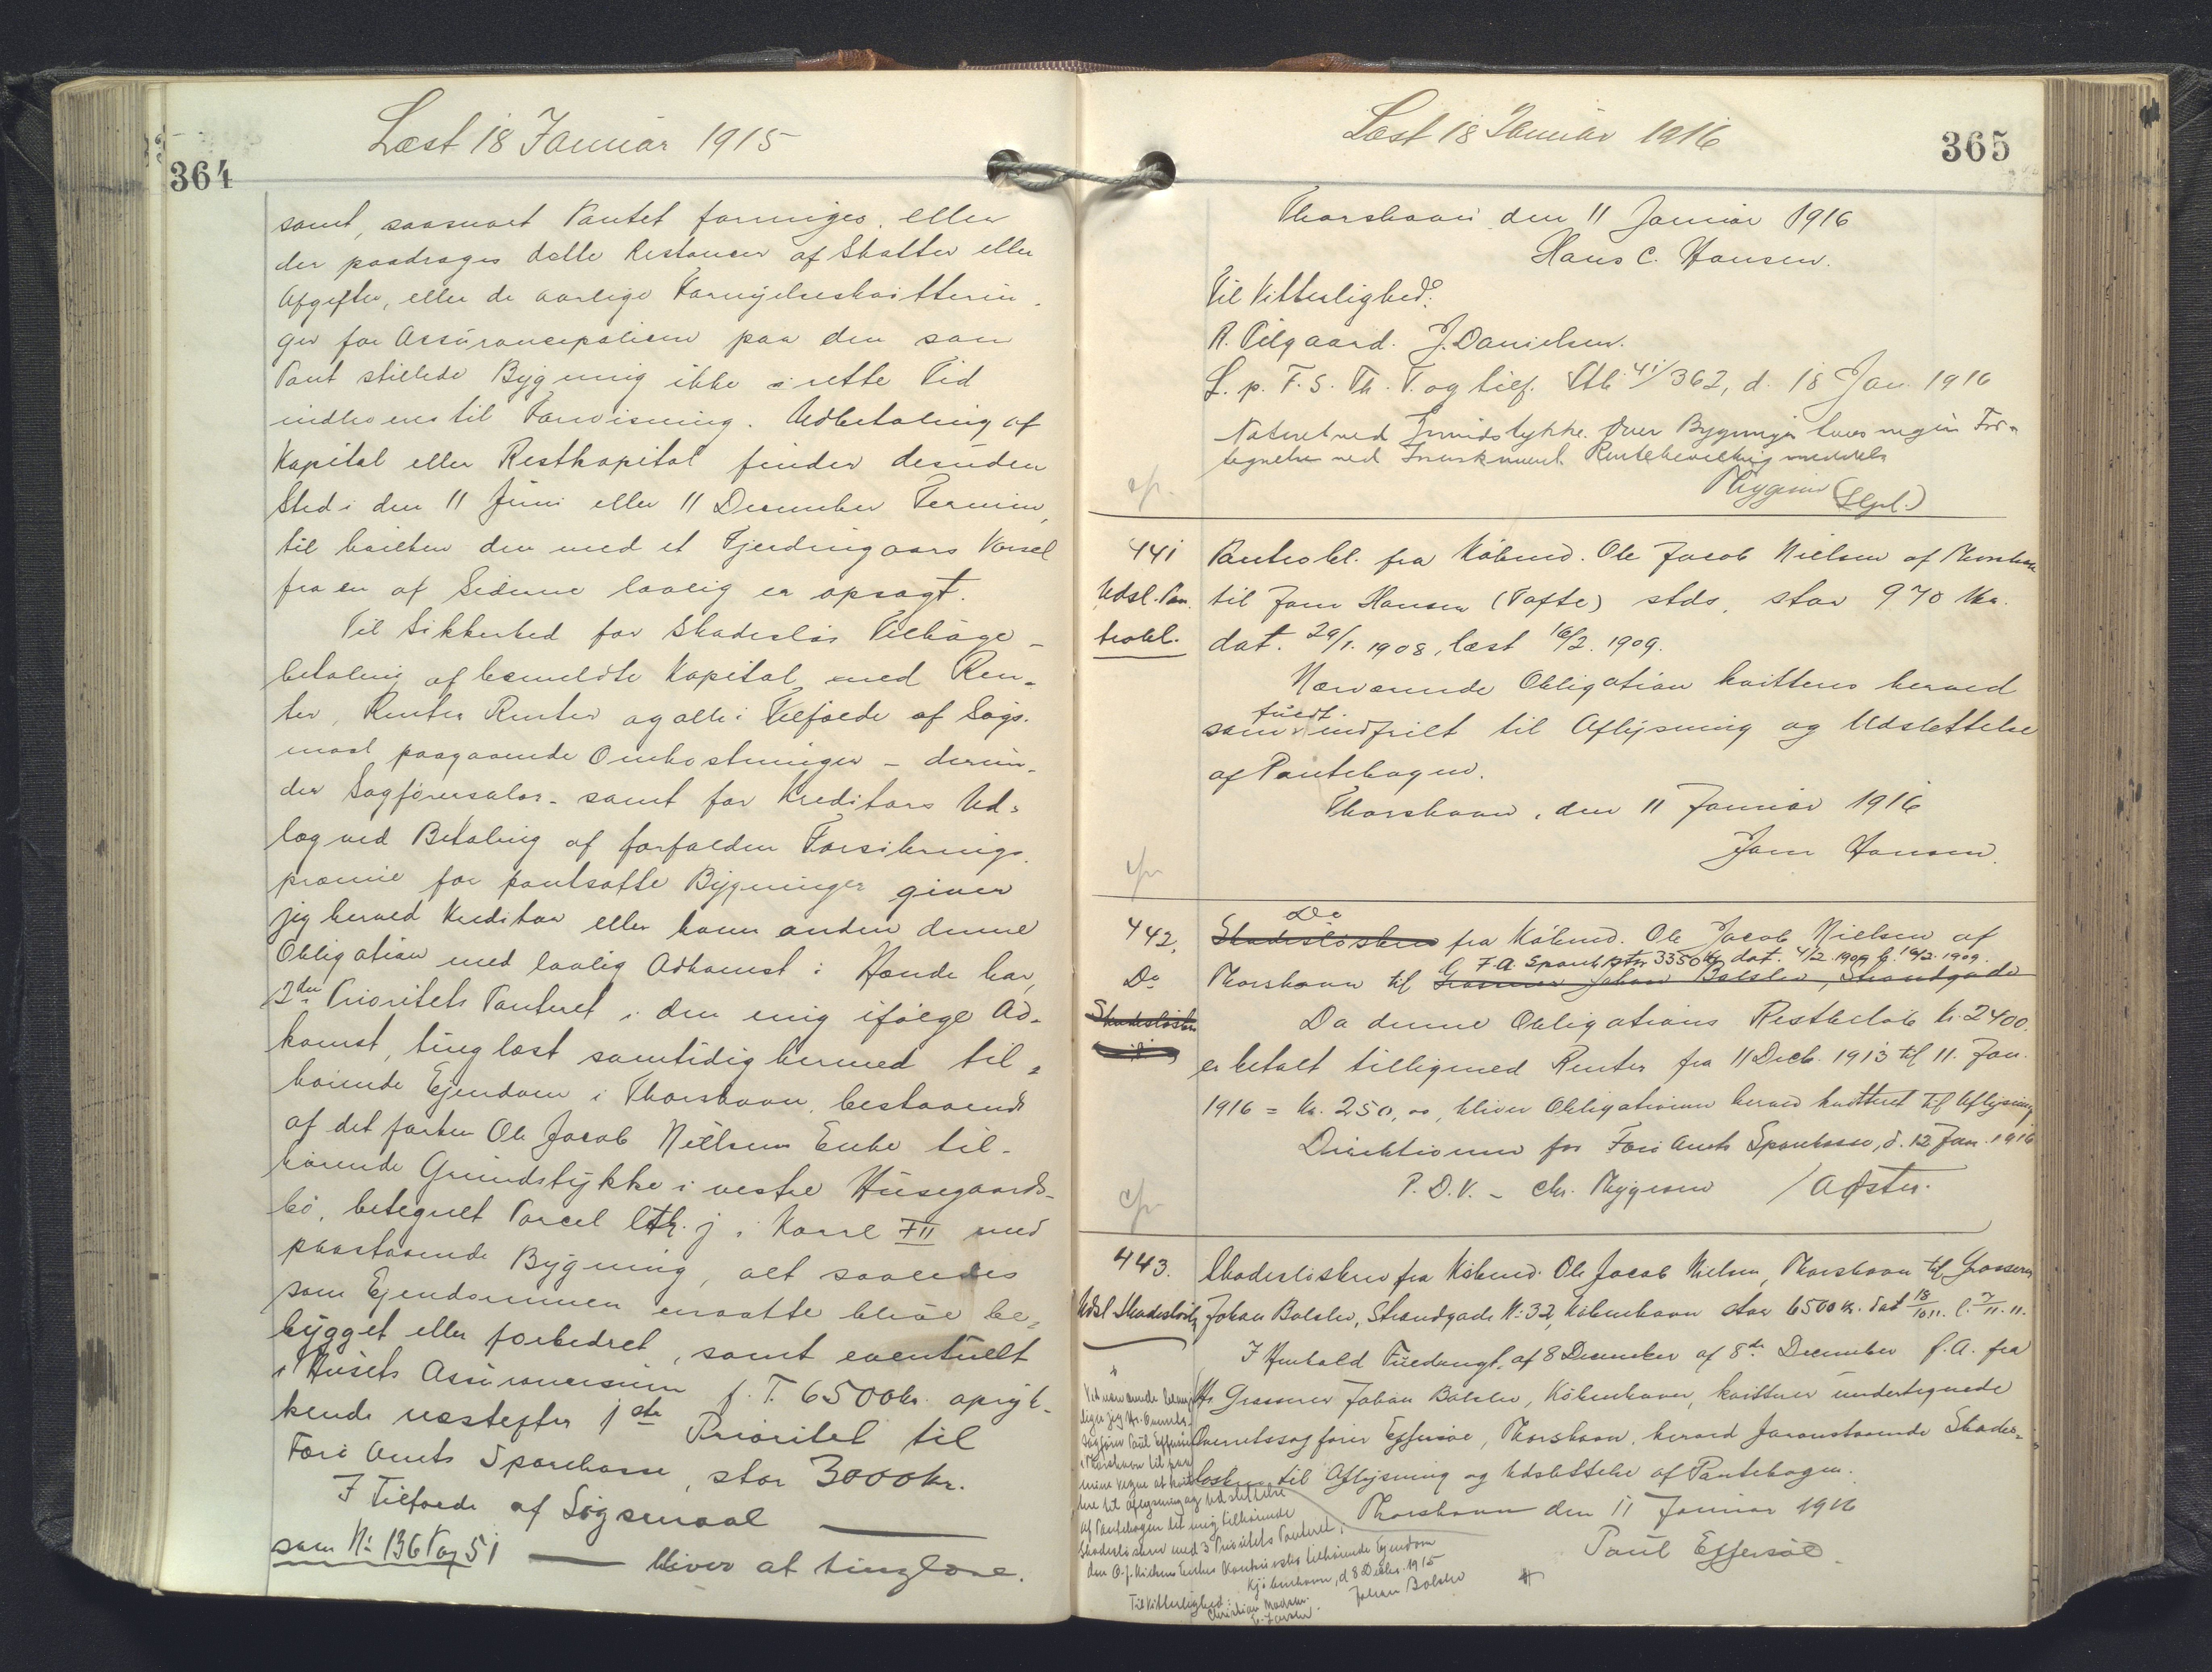 364
Læst 18 Januar 1915
samt, saasnart Pantet forringes, eller
der paadrages dette Restancer af Skatter eller
Afgifter, eller de aarlige Fornyelseskvitterin-
ger for Assurancepolicen paa den som
Pant stillede Bygning ikke i rette Tid
indleveres til Forevisning. Udbetaling af
Kapital eller Restkapital finder desuden
Sted i den 11 Juni eller 11 December Termin,
til hvilken den med et Fjerdingaars Varsel
fra en af Siderne lovlig er opsagt.
Til Sikkerhed for skadesløs Tilbage-
betaling af bemeldte Kapital med Ren-
ter, Renters Renter og alle i Tilfælde af Søgs-
maal paagaaende Omkostninger - derun-
der Sagførersalær - samt for Kreditors Ud-
læg ved Betaling af forfalden Forsikrings-
præmie for pantsatte Bygninger giver
jeg herved Kreditor eller hvem anden denne
Obligation med lovlig Adkomst i Hænde har,
2den Prioritets Panteret i den mig ifølge Ad-
komst, tinglæst samtidig hermed til-
hørende Ejendom i Thorshavn, bestaaende
af det forhen Ole Jacob Nielsens Enke til-
hørende Grundstykke i vestre Húsegaards-
bø, betegnet Parcel Ltr. j i Karré XII med
paastaaende Bygning, alt saaledes
som Ejendommen maatte blive be-
bygget eller forbedret, samt eventuelt
i Husets Assurancesum f. T. 6500 Kr. opryk-
kende næstefter 1ste Prioritet til
Færø Amts Sparekasse, stor 3000 Kr.
I Tilfælde af Søgsmaal
som No 136 Pag 51 bliver at tinglæse.
365
Læst 18 Januar 1916
Thorshavn, den 11 Januar 1916
Hans C. Hansen.
Til Vitterlighed:
R. Pilgaard. J. Danielsen.
L. p. F. S. Th. T. og tilf. 41/362, d. 18 Jan 1916
Noteret ved Grundstykke. Over Bygninger haves ingen For-
tegnelse ved
(Sgl.)
441
Udsl. Pan-
teobl.
Panteobl. fra Købmd. Ole Jacob Nielsen af Thorshavn
til Hansen (Tofte) stds, stor 970 Kr.
dat. 29/1. 1908, læst 16/2. 1909.
Nærværende Obligation kvitteres herved
som fuldt indfriet til Aflysning og Udslettelse
af Pantebogen.
Thorshavn, den 11 Januar 1916
Hansen.
442.
Do
Skadesløsbr
Skadesløsbrev Do fra Købmd. Ole Jacob Nielsen af
F. A. Spark. stor 3350 Kr dat. 4/2 1909 l. 16/2. 1909.
Thorshavn til Grosserer Johan Balslev, Strandgade
Da denne Obligations Restbeløb Kr. 2400
er betalt tilligemed Renter fra 11 Decb. 1913 til 11. Jan.
1916 = Kr. 250,00, bliver Obligationen herved kvitteret til Aflysning
Direktionen for Færø Amts Sparekasse, d. 12 Jan. 1916
P. D. V. - Chr. Thygesen / A Øster.
443.
Udsl Skadesløsbr
Skadesløsbrev fra Købmd. Ole Jacob Nielsen, Thorshavn til Grosserer
Johan Balslev, Strandgade No 32, København stor 6500 Kr. dat 13/10 11. l. 7/11. 11.
I Henhold Fuldmagt af 8 December af 8de December f. A. fra
Hr Grosserer Johan Balslev, København, kvitterer undertegnede
Overretssagfører Effersøe, Thorshavn, herved foranstaaende Skades-
løsbrev til Aflysning og Udslettelse af Pantebogen.
Thorshavn den 11 Januar 1916
Paul Effersøe.
Ved nærværende bemyn-
diger jeg Hr. Overrets-
sagfører Poul Effersøe
i Thorshavn til paa
mine Vegne at kvit-
tere til Aflysning og Udslettelse
af Pantebogen det mig tilhørende
Skadesløsbrev med 3 Prioritets Panteret i
den O. J. Nielsens Enkes tilhørende Ejendom
Kjøbenhavn, d 8 Decbr. 1915
Johan Balslev
Til Vitterlighed:
Christian Madsen.